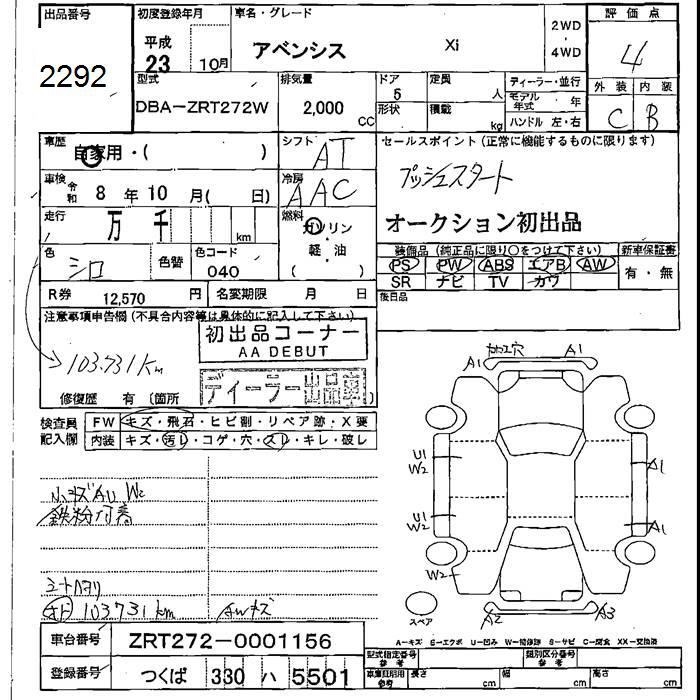 出品番号 初度登録年月 車名・グレード 2WD・4WD 評価点
2292 平成 23 10月 アベンシス Xi 4
型式 排気量 ドア 定員 ディーラー・並行 外装 内装
DBA-ZRT272W 2,000 CC 5 人 モデル年式 年 C B
形状 積載 kg ハンドル 左・右
車歴 自家用・( ) シフト AT セールスポイント (正常に機能するものに限ります)
車検 令和 8年 10月( 日) 冷房 AAC プッシュスタート
走行 万 千 km 燃料 ガソリン・軽油 ( ) オークション初出品
色 シロ 色替 色コード 040 装備品 (純正品に限り○をつけて下さい) 新車保証書
PS PW ABS エアB AW 有・無
SR ナビ TV カワ
R券 12,570 円 名変期限 月 日 後日品
注意事項申告欄 (不具合内容等は具体的に記入して下さい)
初出品コーナー
AA DEBUT
103.731Km
ディーラー出品車
修復歴 有 (箇所 )
検査員記入欄 FW キズ・飛石・ヒビ割・リペア跡・X要
内装 キズ・汚レ・コゲ・穴・スレ・キレ・破レ
加工穴
A1 A1
U1 W2 A1
U1 W2 A1
W2
A2 A3
スペア
小キズAU W2
鉄粉付着
シートヘタリ
103731km AWキズ
A-キズ E-エクボ U-凹み W-補修跡 S-サビ C-腐食 XX-交換済
車台番号 ZRT272-0001156
型式指定番号 参考 類別区分番号 参考
登録番号 つくば 330 ハ 5501
車庫証明用参考 長さ cm 幅 cm 高さ cm